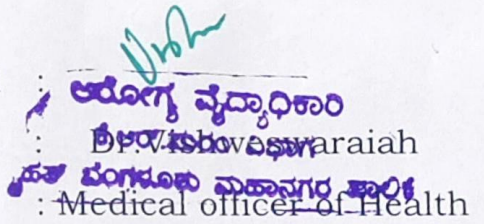 :
ಆರೋಗ್ಯ ವೈದ್ಯಾಧಿಕಾರಿ
: Dr Vishweswaraiah
ವಿಭಾಗ
ಬೃಹತ್ ಬೆಂಗಳೂರು ಮಹಾನಗರ ಪಾಲಿಕೆ
: Medical officer of Health